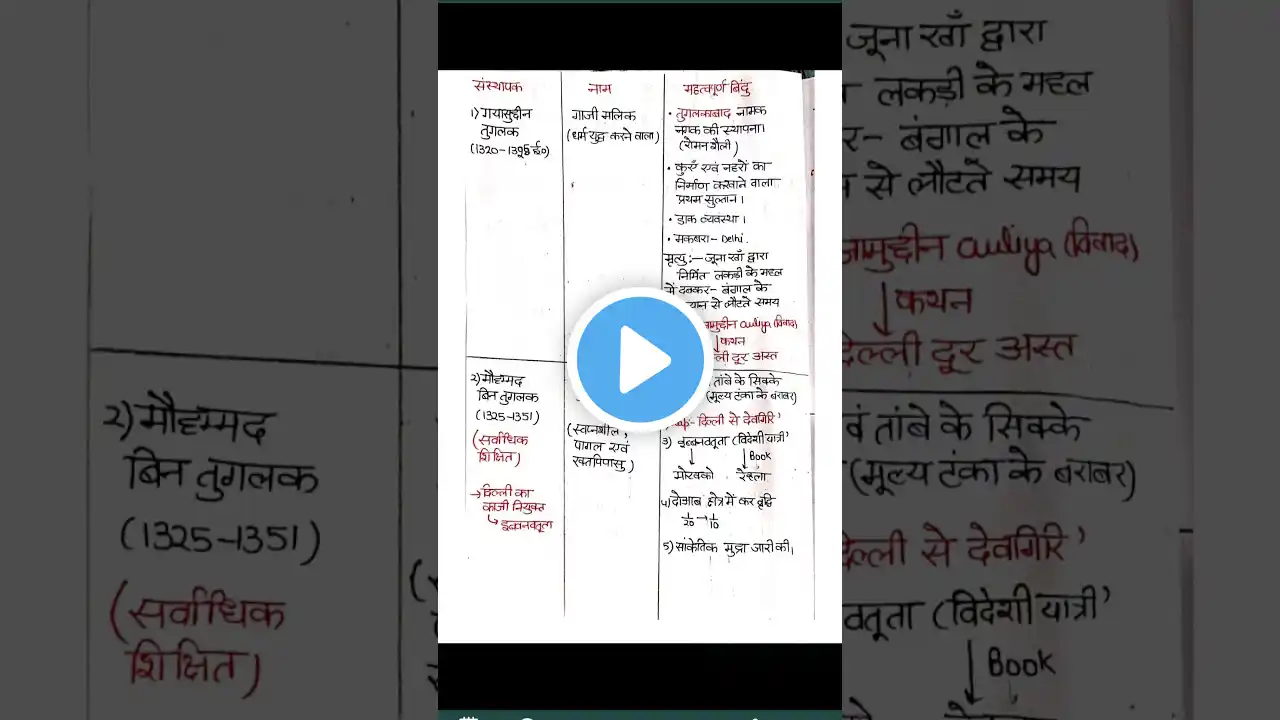 संस्थापक
नाम
महत्वपूर्ण बिंदु
1) गयासुद्दीन
तुगलक
गाजी मलिक
(धर्म युद्ध करने वाला)
• तुगलकाबाद नामक
नगर की स्थापना।
(रोमन शैली)
• कुएँ एवं नहरों का
निर्माण करवाने वाला
प्रथम सुल्तान।
• डाक व्यवस्था।
• मकबरा - Delhi.
मृत्यु :- जूना खाँ द्वारा
निर्मित लकड़ी के महल
में दबकर - बंगाल के
से लौटते समय
auliya (विवाद)
कथन
दूर अस्त
2) मौहम्मद
बिन तुगलक
(1325-1351)
(सर्वाधिक
शिक्षित)
→ दिल्ली का
काजी नियुक्त
इब्नबतूता
(स्वप्नशील,
पागल एवं
रक्तपिपासु)
तांबे के सिक्के
(मूल्य टंका के बराबर)
दिल्ली से देवगिरि'
3) इब्नबतूता (विदेशी यात्री'
Book
मोरक्को
रेहला
4) दोआब क्षेत्र में कर वृद्धि
1/20 → 1/10
5) सांकेतिक मुद्रा जारी की।
2) मौहम्मद
बिन तुगलक
(1325-1351)
(सर्वाधिक
शिक्षित)
जूना खाँ द्वारा
लकड़ी के महल
बंगाल के
से लौटते समय
auliya (विवाद)
कथन
दूर अस्त
तांबे के सिक्के
(मूल्य टंका के बराबर)
से देवगिरि'
(विदेशी यात्री'
Book